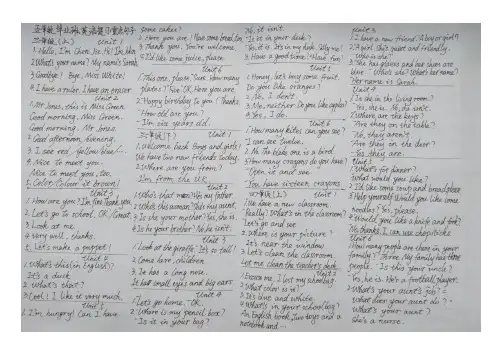 五年级毕业班英语复习重点句子
三年级(上) Unit 1
1. Hello, I'm Chen Jie. Hi! I'm Mike.
2. What's your name? My name's Sarah.
3. Goodbye! Bye, Miss White!
4. I have a ruler. I have an eraser.
Unit 2
1. Mr Jones, this is Miss Green.
Good morning, Miss Green.
Good morning, Mr Jones.
2. Good afternoon, evening.
3. I see red, yellow, blue!...
4. Nice to meet you.
Nice to meet you, too.
5. Colour it brown!
Unit 3
1. How are you? I'm fine, Thank you.
2. Let's go to school. OK! / Great!
3. Look at me.
4. Very well, thanks.
5. Let's make a puppet!
Unit 4
1. What's this (in English)?
It's a duck.
2. What's that?
3. Cool! I like it very much.
Unit 5
1. I'm hungry! Can I have
some cakes?
2. Here you are! Have some bread, too.
3. Thank you. You're welcome.
4. I'd like some juice, please.
Unit 6
1. This one, please. Sure. How many
plates? Five. OK. Here you are.
2. Happy birthday to you! Thanks.
How old are you?
I'm six years old.
三年级(下) Unit 1
1. Welcome back, boys and girls!
We have two new friends today.
2. Where are you from?
I'm from the UK.
Unit 2
1. Who's that man? He's my father.
2. What's that woman? She's my aunt.
3. Is she your mother? Yes, she is.
4. Is he your brother? No, he isn't.
Unit 3
1. Look at the giraffe. It's so tall!
2. Come here, children.
3. It has a long nose.
It has small eyes and big ears.
Unit 4
1. Let's go home. OK.
2. Where is my pencil box?
Is it in your bag?
No, it isn't.
Is it in your desk?
Yes, it is. It's in my desk. Silly me!
3. Have a good time! Have fun!
Unit 5
1. Honey, let's buy some fruit.
Do you like oranges?
2. No, I don't.
3. Me, neither. Do you like apples?
4. Yes, I do.
Unit 6
1. How many kites can you see?
I can see twelve.
2. No. The blake one is a bird.
3. How many crayons do you have?
Open it and see.
You have sixteen crayons.
四年级(上) Unit 1
1. We have a new classroom.
Really? What's in the classroom?
Let's go and see.
2. Where is your picture?
It's near the window.
3. Let's clean the classroom.
Let me clean the teacher's desk.
Unit 2
1. Excuse me. I lost my schoolbag.
2. What color is it?
3. It's blue and white.
4. What's in your schoolbag?
An English book, two toys and a
notebook and ...
Unit 3
1. I have a new friend. A boy or girl?
2. A girl. She's quiet and friendly.
Who is she?
3. She has glasses and her shoes are
blue. Who's she? What's her name?
Her name is Sarah.
Unit 4
1. Is she in the living room?
Yes, she is. No, she isn't.
2. Where are the keys?
Are they on the table?
No, they aren't.
Are they in the door?
Yes, they are.
Unit 5
1. What's for dinner?
What would you like?
2. I'd like some soup and bread, please.
3. Help yourself. Would you like some
noodles? Yes, please.
4. Would you like a knife and fork?
No, thanks. I can use chopsticks.
Unit 6
1. How many people are there in your
family? Three. My family has three
people. Is this your uncle?
Yes, he is. He's a football player.
2. What's your aunt's job? =
What does your aunt do? =
What's your aunt?
She's a nurse.